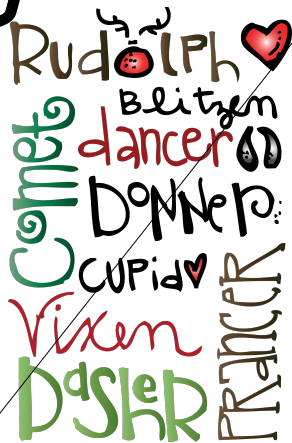 Rudolph
Blitzen
dancer
Comet
DoNNeR
cupid
Vixen
DasheR
PRaNceR